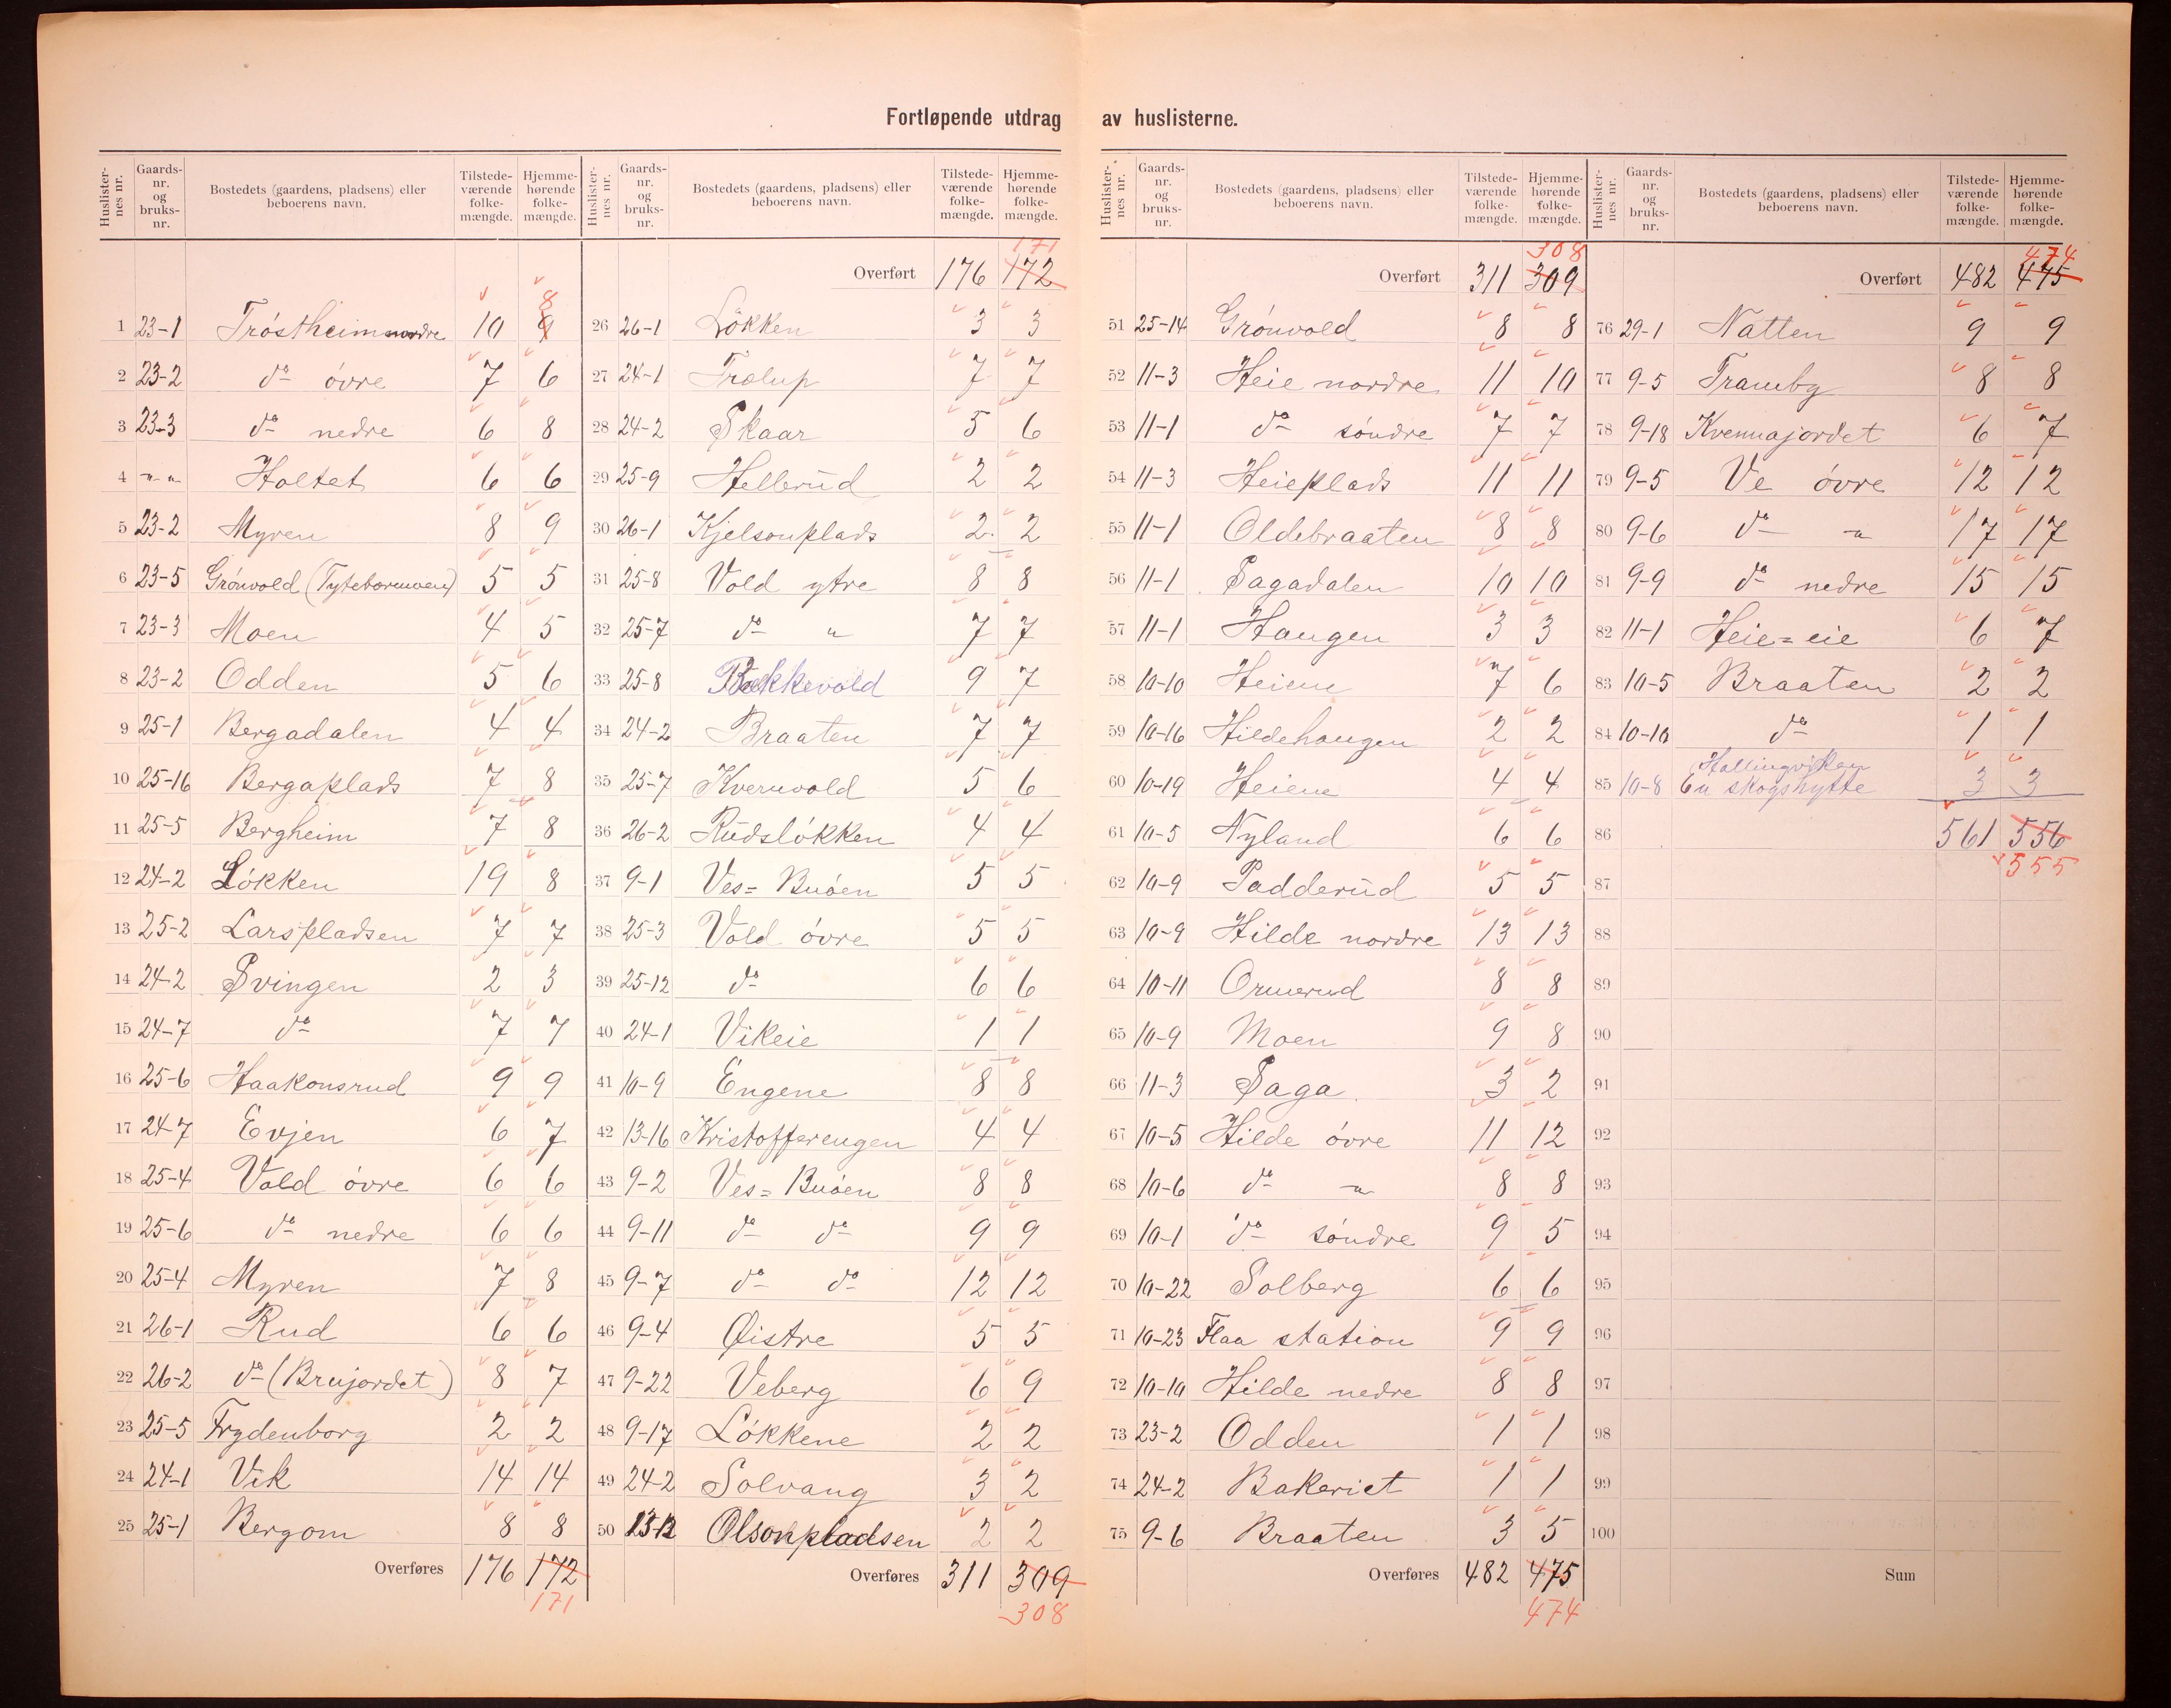 Fortløpende utdrag av huslisterne.
Huslister-nes nr. Gaards-nr. og bruks-nr. Bostedets (gaardens, pladsens) eller beboerens navn. Tilstede-værende folke-mængde. Hjemme-hørende folke-mængde.
1 23-1 Tróstheim nordre 10 9 8
2 23-2 do óvre 7 6
3 23-3 do nedre 6 8
4 "-" Holtet 6 6
5 23-2 Myren 8 9
6 23-5 Grónvold (Tytebormoen) 5 5
7 23-3 Moen 4 5
8 23-2 Odden 5 6
9 25-1 Bergadalen 4 4
10 25-16 Bergaplads 7 8
11 25-5 Bergheim 7 8
12 24-2 Lókken 19 8
13 25-2 Larspladsen 7 7
14 24-2 Svingen 2 3
15 24-7 do 7 7
16 25-6 Haakonsrud 9 9
17 24-7 Evjen 6 7
18 25-4 Vold óvre 6 6
19 25-6 do nedre 6 6
20 25-4 Myren 7 8
21 26-1 Rud 6 6
22 26-2 do (Brujordet) 8 7
23 25-5 Frydenborg 2 2
24 24-1 Vik 14 14
25 25-1 Bergom 8 8
Overføres 176 172
171
Huslister-nes nr. Gaards-nr. og bruks-nr. Bostedets (gaardens, pladsens) eller beboerens navn. Tilstede-værende folke-mængde. Hjemme-hørende folke-mængde.
171
Overført 176 172
26 26-1 Lökken 3 3
27 24-1 Trolup 7 7
28 24-2 Skaar 5 6
29 25-9 Hellerud 2 2
30 26-1 Kjelsonplads 2 2
31 25-8 Vold ytre 8 8
32 25-7 do " 7 7
33 25-8 Bækkevold 9 7
34 24-2 Braaten 7 7
35 25-7 Kvernvold 5 6
36 26-2 Rudslókken 4 4
37 9-1 Ves= Buóen 5 5
38 25-3 Vold óvre 5 5
39 25-12 do 6 6
40 24-1 Vikeie 1 1
41 10-9 Engene 8 8
42 13-16 Kristofferengen 4 4
43 9-2 Ves= Buóen 8 8
44 9-11 do do 9 9
45 9-7 do do 12 12
46 9-4 Øistre 5 5
47 9-22 Veberg 6 9
48 9-17 Lókkene 2 2
49 24-2 Solvang 3 2
50 13-12 Olsonpladsen 2 2
Overføres 311 309
308
Huslister-nes nr. Gaards-nr. og bruks-nr. Bostedets (gaardens, pladsens) eller beboerens navn. Tilstede-værende folke-mængde. Hjemme-hørende folke-mængde.
308
Overført 311 309
51 25-14 Grónvold 8 8
52 11-3 Heie nordre 11 10
53 11-1 do sóndre 7 7
54 11-3 Heieplads 11 11
55 11-1 Oldebraaten 8 8
56 11-1 Sagadalen 10 10
57 11-1 Haugen 3 3
58 10-10 Heiene 7 6
59 10-16 Hildehaugen 2 2
60 10-19 Heiene 4 4
61 10-5 Nyland 6 6
62 10-9 Padderud 5 5
63 10-9 Hilde nordre 13 13
64 10-11 Ormerud 8 8
65 10-9 Moen 9 8
66 11-3 Saga 3 2
67 10-5 Hilde óvre 11 12
68 10-6 do " 8 8
69 10-1 do sóndre 9 5
70 10-22 Solberg 6 6
71 10-23 Flaa station 9 9
72 10-10 Hilde nedre 8 8
73 23-2 Odden 1 1
74 24-2 Bakeriet 1 1
75 9-6 Braaten 3 5
Overføres 482 475
474
Huslister-nes nr. Gaards-nr. og bruks-nr. Bostedets (gaardens, pladsens) eller beboerens navn. Tilstede-værende folke-mængde. Hjemme-hørende folke-mængde.
474
Overført 482 475
76 29-1 Natten 9 9
77 9-5 Tramby 8 8
78 9-18 Kvennajordet 6 7
79 9-5 Ve óvre 12 12
80 9-6 do " 17 17
81 9-9 do nedre 15 15
82 11-1 Heie=eie 6 7
83 10-5 Braaten 2 2
84 10-10 do 1 1
Hallingviken
85 10-8 En skogshytte 3 3
86 561 556
87 555
88
89
90
91
92
93
94
95
96
97
98
99
100
Sum